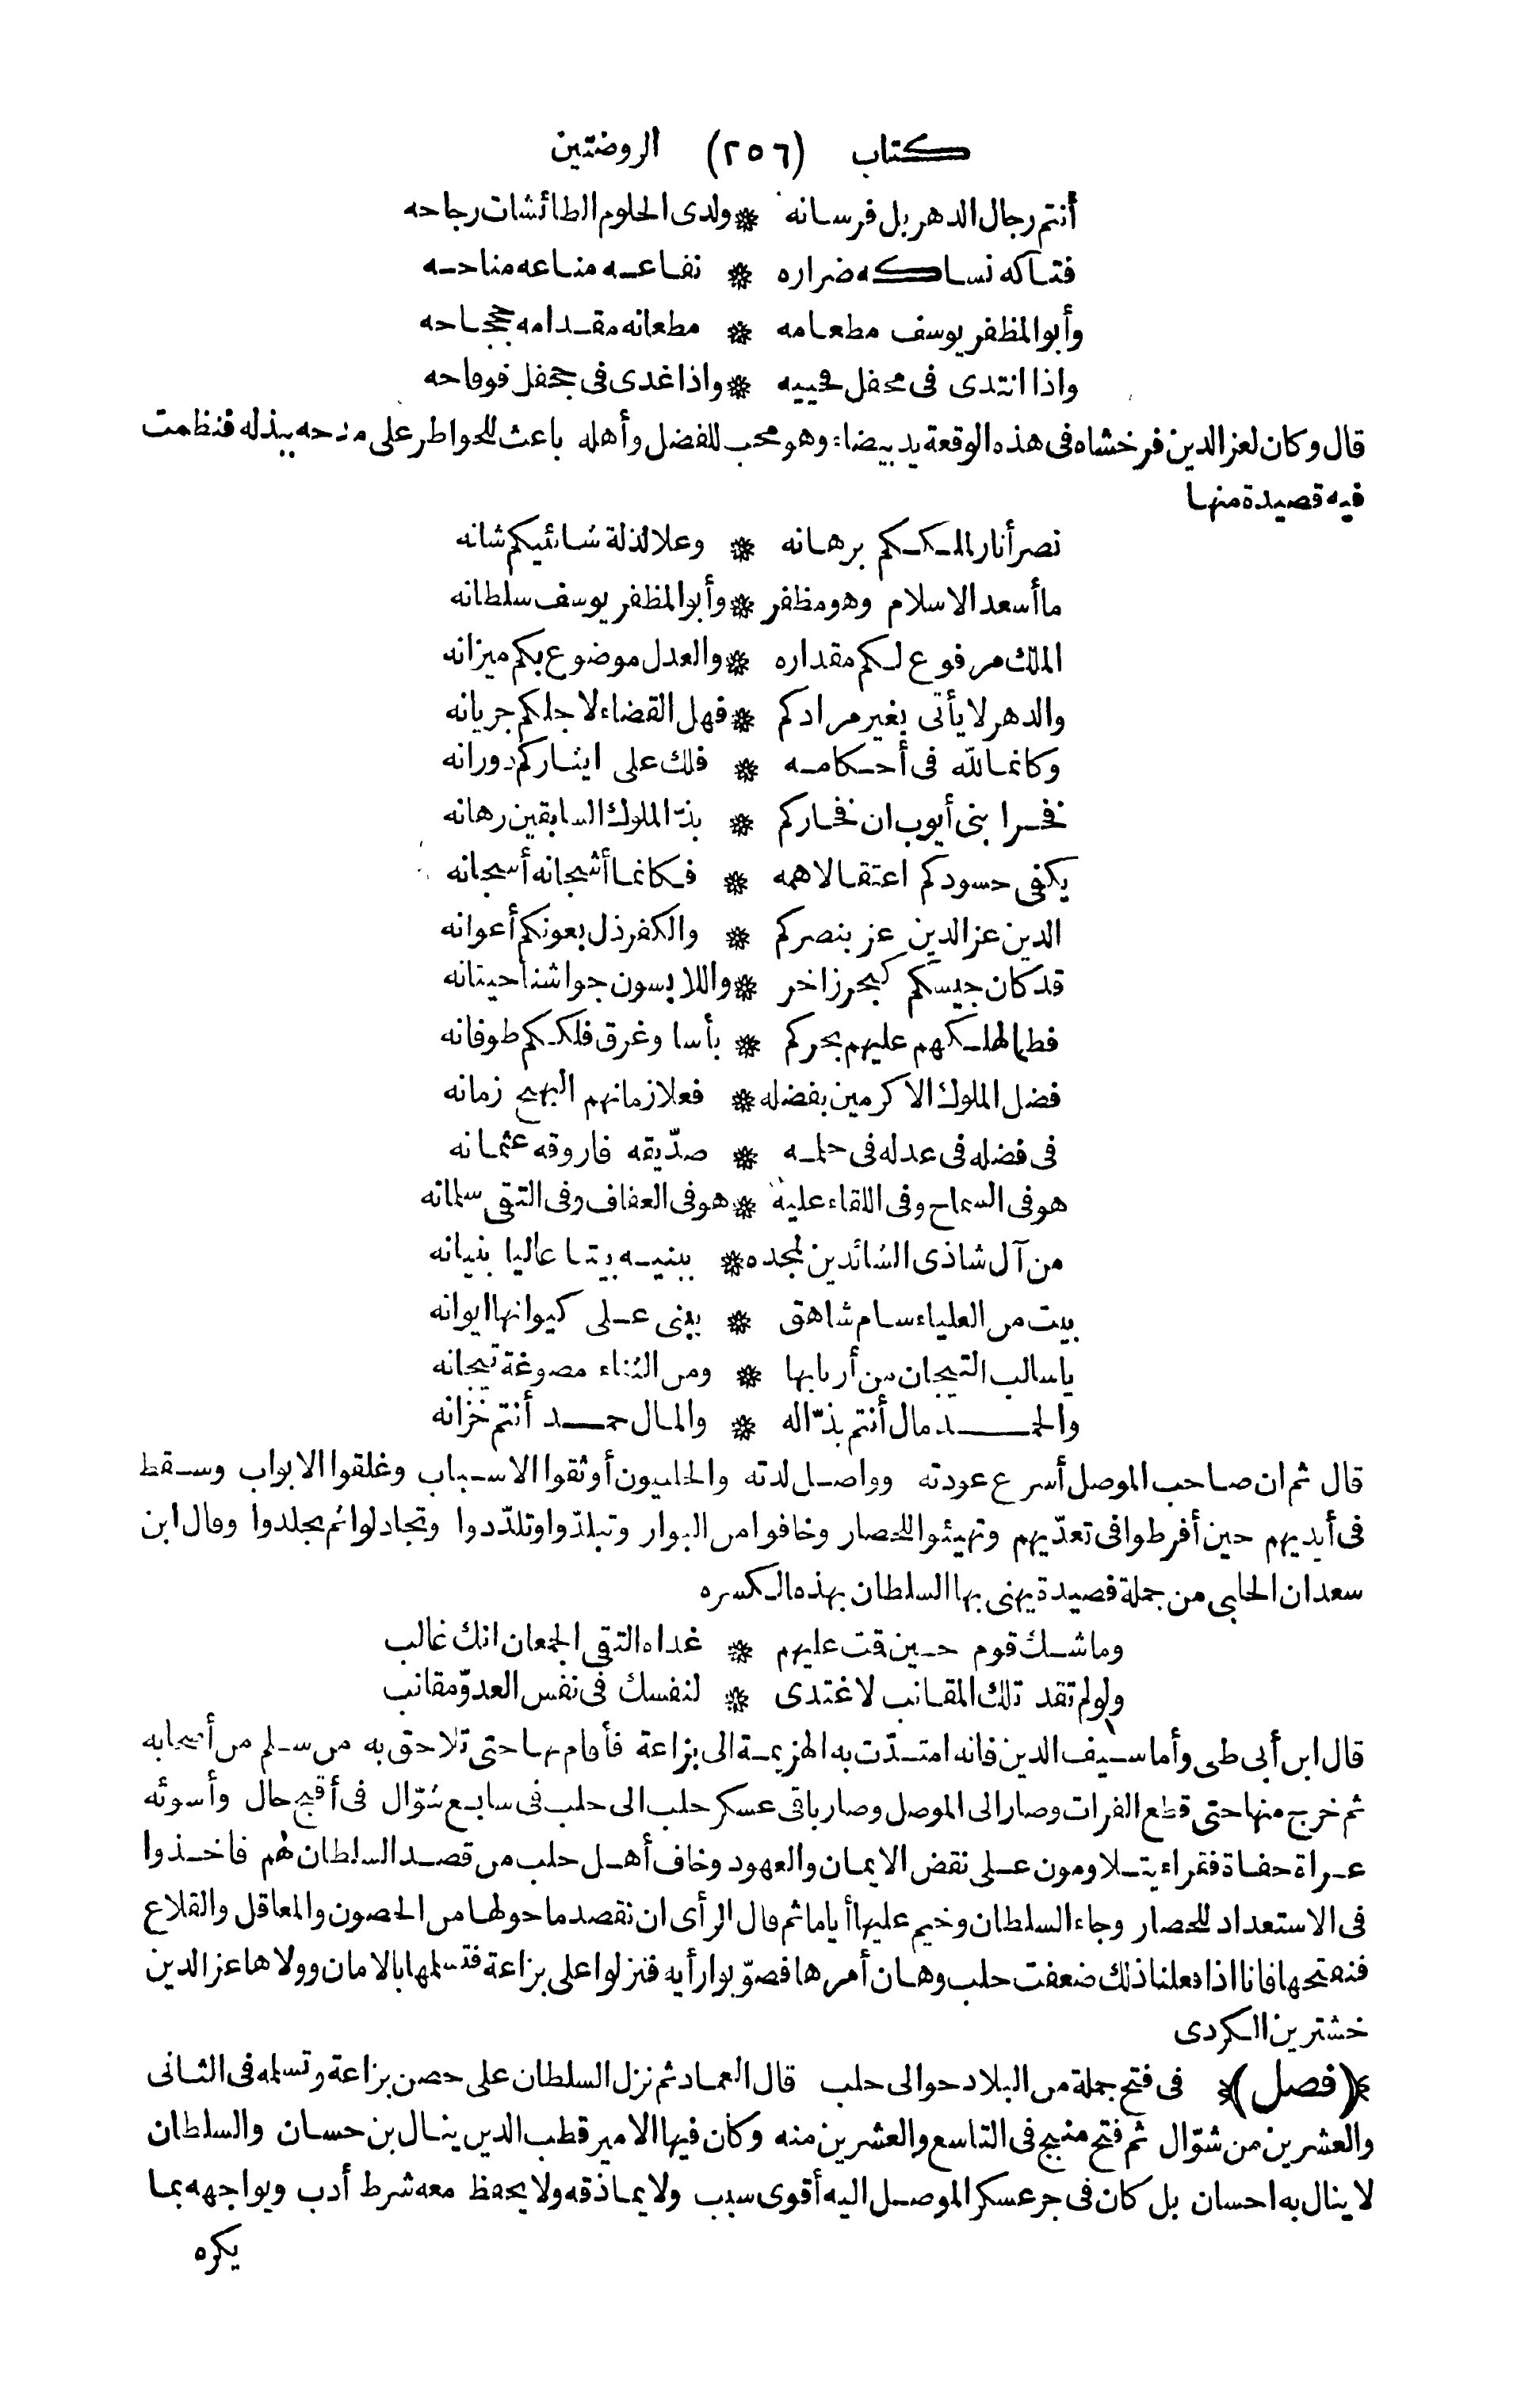 كتاب (٢٥٦) الروضتين
أنتم رجال الدهر بل فرسانه * ولدى الحلوم الطائشات رجاحه
فتاكه نساكه ضراره * نفاعه مناعه مناحه
وأبو المظفر يوسف مطعامه * مطعانه مقدامه جحجاحه
واذا انتدى فى محفل فحييه * واذا غدى فى جحفل فوقاحه
قال وكان لعز الدين فرخشاه فى هذه الوقعة يد بيضاء وهو محب للفضل وأهله باعث للخواطر على مدحه ببذله فنظمت
فيه قصيدة منها
نصر أنار لملككم برهانه * وعلا لذلة شائنيكم شانه
ما أسعد الاسلام وهو مظفر * وأبو المظفر يوسف سلطانه
الملك مرفوع لكم مقداره * والعدل موضوع بكم ميزانه
والدهر لا يأتى بغير مرادكم * فهل القضاء لاجلكم جريانه
وكانما لله فى أحكامه * فلك على ايثاركم دورانه
فخرا بنى أيوب ان فخاركم * بذّ الملوك السابقين رهانه
يكفى حسودكم اعتقالا همه * فكانما أشجانه أسجانه
الدين عز الدين عز بنصركم * والكفر ذل بعونكم أعوانه
قد كان جيشكم كبحر زاخر * واللابسون جواشنا حيتانه
فطما لهلكهم عليهم بحركم * بأسا وغرق فلككم طوفانه
فضل الملوك الاكرمين بفضله * فعلا زمانهم البهج زمانه
فى فضله فى عدله فى حلمه * صدّيقه فاروقه عثمانه
هو فى السماح وفى اللقاء عليه * هو فى العفاف وفى التقى سلمانه
من آل شاذى الشائدين لمجده * ببنيه بيتا عاليا بنيانه
بيت من العلياء سام شاهق * يبنى على كيوانها ايوانه
يا سالب التيجان من أربابها * ومن الثناء مصوغة تيجانه
والحمد مال أنتم بذّاله * والمال حمد أنتم خزانه
قال ثم ان صاحب الموصل أسرع عودته وواصل لدته والحلبيون أوثقوا الاسباب وغلقوا الابواب وسقط
فى أيديهم حين أفرطوا فى تعدّيهم وتهيئوا للحصار وخافوا من البوار وتبلدّوا وتلدّدوا وتجادلوا ثم تجلدوا وقال ابن
سعدان الحلبى من جملة قصيدة يهنى بها السلطان بهذه الكسره
وما شك قوم حين قمت عليهم * غداه التقى الجمعان انك غالب
ولو لم تقد تلك المقانب لاغتدى * لنفسك فى نفس العدوّ مقانب
قال ابن أبى طى وأما سيف الدين فانه امتدّت به الهزيمة الى بزاعة فأقام بها حتى تلاحق به من سلم من أصحابه
ثم خرج منها حتى قطع الفرات وصار الى الموصل وصار باقى عسكر حلب الى حلب فى سابع شوّال فى أقبح حال وأسوئه
عراة حفاة فقراء يتلاومون على نقض الايمان والعهود وخاف أهل حلب من قصد السلطان لهم فاخذوا
فى الاستعداد للحصار وجاء السلطان وخيم عليها أياما ثم قال الرأى ان نقصد ما حولها من الحصون والمعاقل والقلاع
فنفتحها فانا اذا فعلنا ذلك ضعفت حلب وهان أمرها فصوّبوا رأيه فنزلوا على بزاعة فتسلمها بالامان وولاها عز الدين
خشترين الكردى
(فصل) فى فتح جملة من البلاد حوالى حلب قال العماد ثم نزل السلطان على حصن بزاعة وتسلمه فى الثانى
والعشرين من شوّال ثم فتح منبج فى التاسع والعشرين منه وكان فيها الامير قطب الدين ينال بن حسان والسلطان
لا ينال به احسان بل كان فى جر عسكر الموصل اليه أقوى سبب ولا يماذقه ولا يحفظ معه شرط أدب ويواجهه بما
يكره